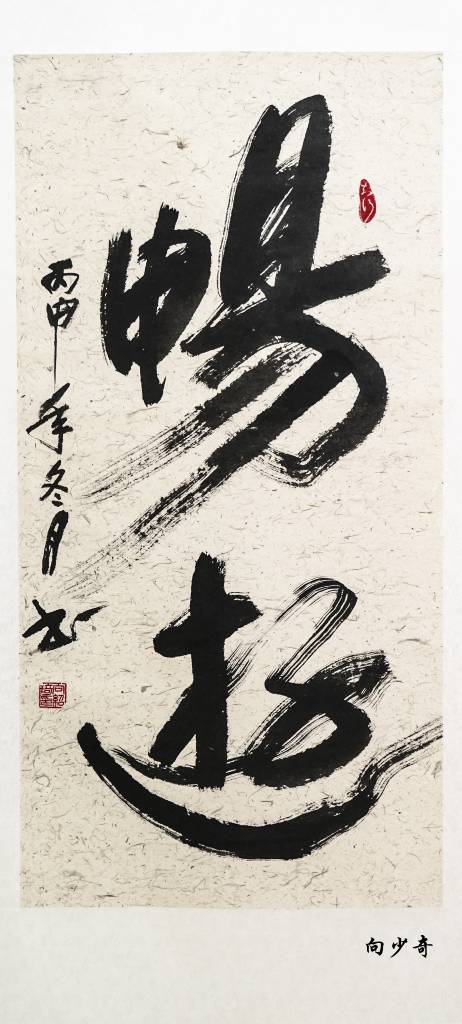 暢遊
丙申年冬月书
向少奇